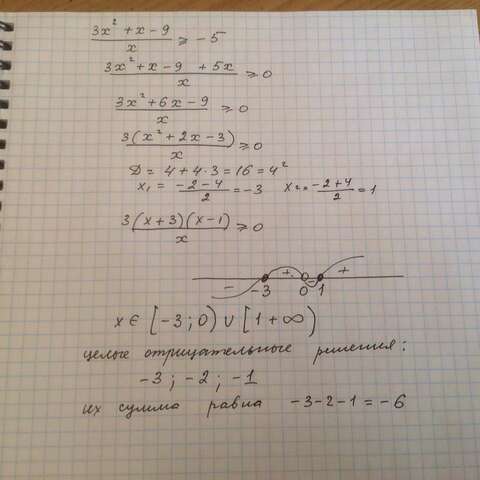 (3x² + x - 9)/x ⩾ -5
(3x² + x - 9 + 5x)/x ⩾ 0
(3x² + 6x - 9)/x ⩾ 0
3(x² + 2x - 3)/x ⩾ 0
D = 4 + 4·3 = 16 = 4²
x₁ = (-2-4)/2 = -3 x₂ = (-2+4)/2 = 1
3(x+3)(x-1)/x ⩾ 0
- + - +
-3 0 1
x ∈ [-3; 0) ∪ [1 +∞)
целые отрицательные решения:
-3 ; -2 ; -1
их сумма равна -3-2-1 = -6